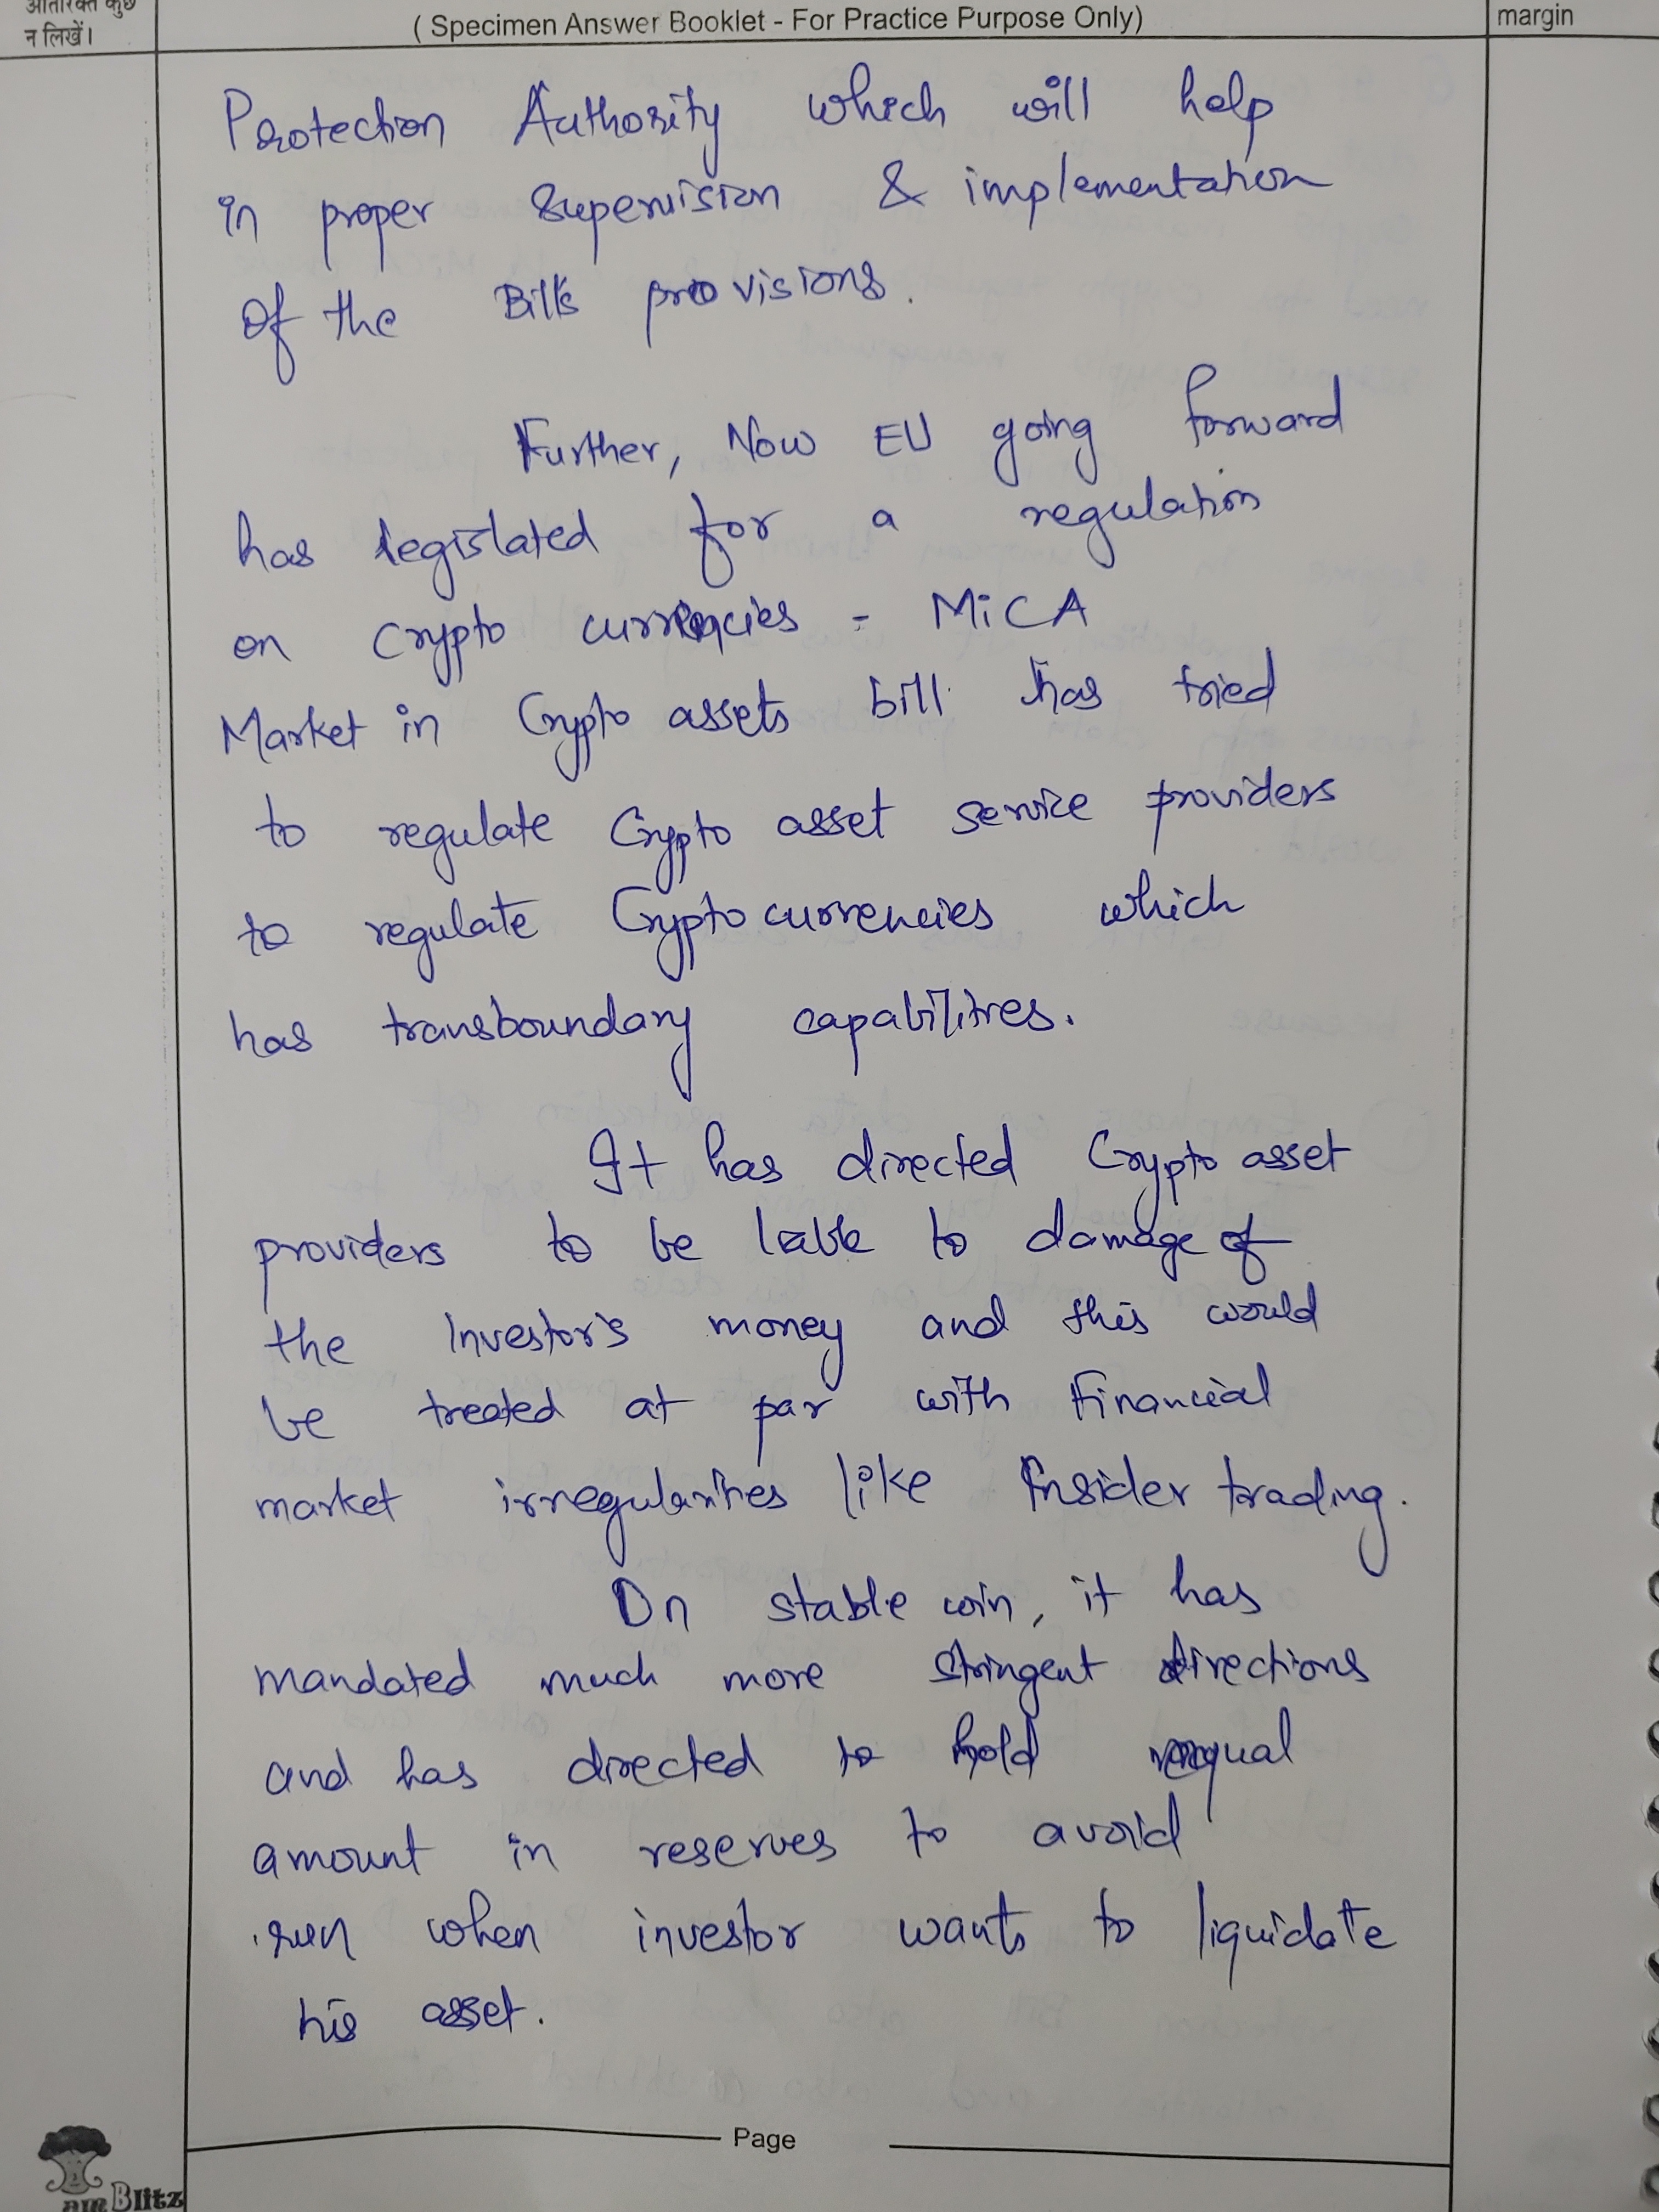 अतिरिक्त कुछ
न लिखें।
( Specimen Answer Booklet - For Practice Purpose Only)
margin
Protection Authority which will help
in proper supervision & implementation
of the Bill's provisions.
Further, Now EU going forward
has legislated for a regulation
on Crypto currencies - MiCA
Market in Crypto assets bill has tried
to regulate Crypto asset service providers
to regulate Cryptocurrencies which
has transboundary capabilities.
It has directed Crypto asset
providers to be liable to damage of
the Investor's money and this would
be treated at par with Financial
market irregularities like Insider trading.
On stable coin, it has
mandated much more stringent directions
and has directed to hold equal
amount in reserves to avoid
run when investor wants to liquidate
his asset.
Page
Blitz